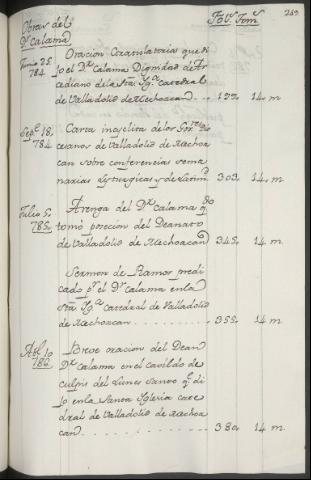 Obras del
Dr. Calama
Fos. Toms.
269
Junio 25.
784.
Oracion Gratulatoria que di
jo el Dr. Calama Dignidad de Ar
cediano de la Sta. Iga. Catedral
de Valladolid de Mechoacan .. 122. 14. m.
Sepe. 18,
784
Carta inscrita de los
cesanos de Valladolid de Mechoa
can sobre conferencias sema
narias Lyturgicas y de Latinid 303. 14. m.
Julio 5.
785.
Arenga del Dr. Calama qdo
tomó posecion del Deanato
de Valladolid de Mechoacan 345. 14 m.
Sermon de Ramos predi
cado pr. el Dr. Calama en la
Sta. Iga. Catedral de Valladolid
de Mechoacan . . . . . . 355. 14 m.
Abl. 10
786
Breve oracion del Dean
Dr. Calama en el cavildo de
culpis del Lunes Santo qe. di
jo en la Santa Iglesia cate
dral de Valladolid de Mechoa
can . . . . . . . . . . 380. 14 m.